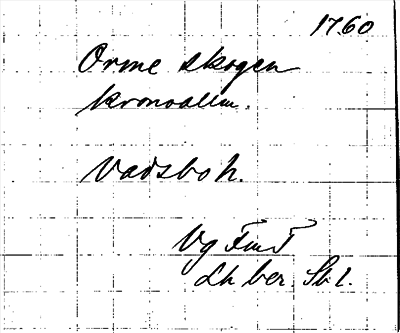 1760
Orme skogen
kronoallm.
Vadsbo h.
Vg FmT
Lh ber. Sb 1.